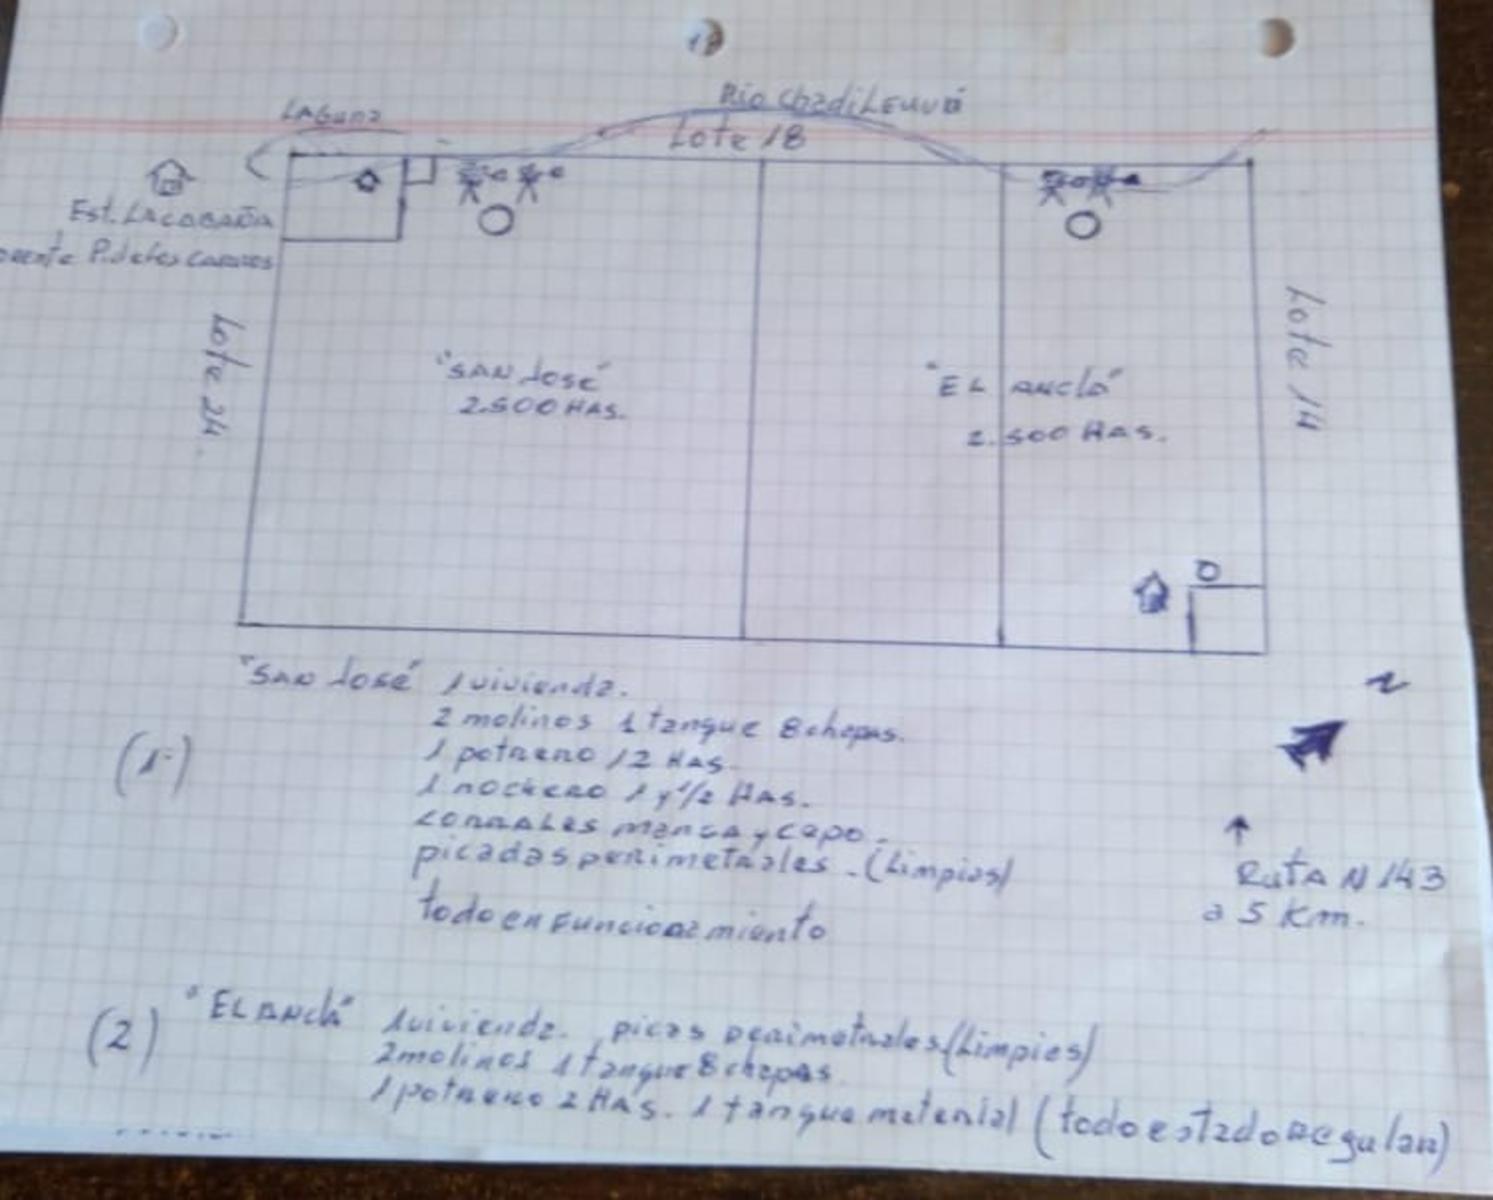 Laguna
Rio Chadileuvú
Lote 18
Est. La Cabaña
P. de los Carros
Lote 24.
"San José"
2.500 Has.
"El Ancla"
2.500 Has.
Lote 14
N
Ruta N 143
a 5 Km.
(1-)
"San José" 1 vivienda.
2 molinos 1 tanque 8 chapas.
1 potrero 12 Has.
1 nochero 1 y 1/2 Has.
corrales manga y cepo.
picadas perimetrales. (Limpias)
todo en funcionamiento
(2) "El Ancla" 1 vivienda. picas perimetrales (Limpias)
2 molinos 1 tanque 8 chapas
1 potrero 2 Has. 1 tanque material (todo estado regular)